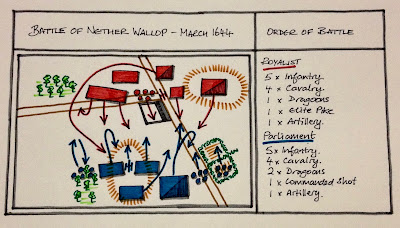 BATTLE OF NETHER WALLOP - MARCH 1644
ORDER OF BATTLE
ROYALIST
5 x Infantry.
4 x Cavalry.
1 x Dragoons
1 x Elite Pike
1 x Artillery.
Parliament
5 x Infantry.
4 x Cavalry.
2 x Dragoons
1 x Commanded Shot
1 x Artillery.